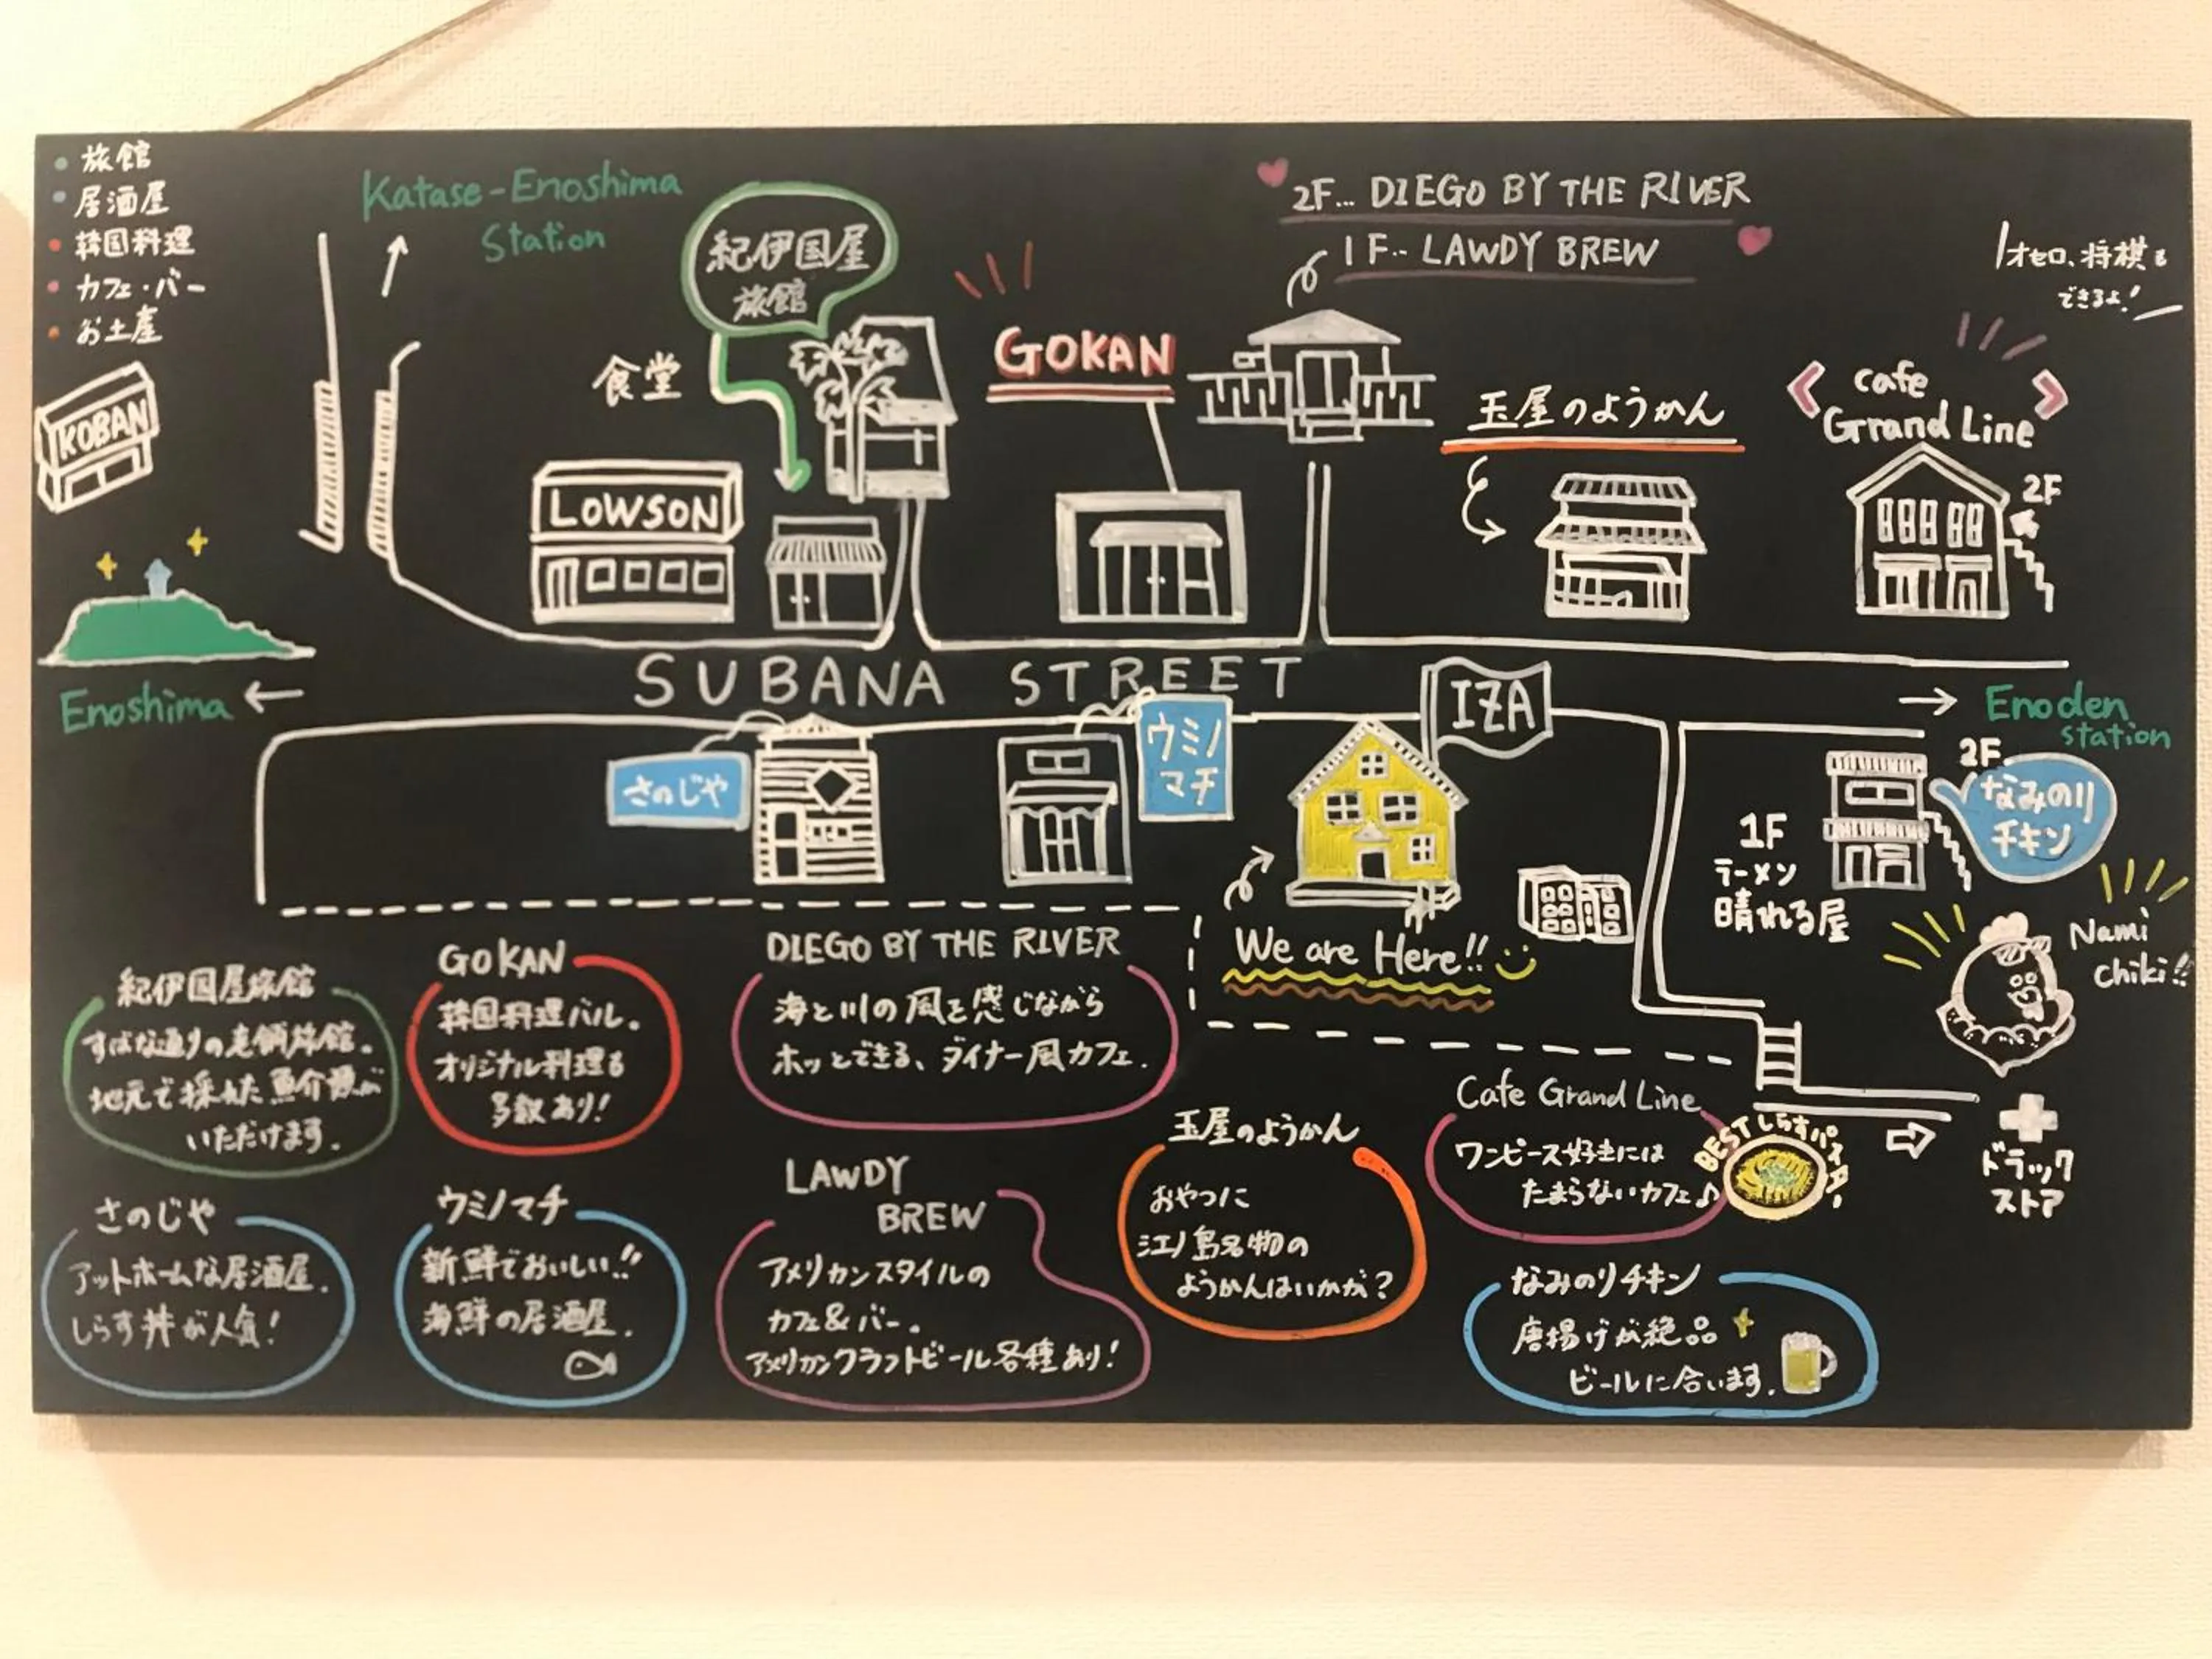 旅館
居酒屋
韓国料理
カフェ・バー
お土産
KOBAN
Katase-Enoshima
Station
紀伊国屋
旅館
食堂
LOWSON
GOKAN
2F... DIEGO BY THE RIVER
1F.. LAWDY BREW
玉屋のようかん
オセロ、将棋も
できるよ!
cafe
Grand Line
2F
Enoshima ←
SUBANA STREET
→ Enoden
station
さのじや
ウミノ
マチ
IZA
We are Here!!
2F
なみのり
チキン
1F
ラーメン
晴れる屋
Nami
chiki!!
ドラック
ストア
紀伊国屋旅館
すばな通りの老舗旅館。
地元で採れた魚介類が
いただけます.
GOKAN
韓国料理バル。
オリジナル料理も
多数あり!
DIEGO BY THE RIVER
海と川の風を感じながら
ホッとできる、ダイナー風カフェ.
さのじや
アットホームな居酒屋.
しらす丼が人気!
ウミノマチ
新鮮でおいしい!!
海鮮の居酒屋.
LAWDY
BREW
アメリカンスタイルの
カフェ&バー。
アメリカンクラフトビール各種あり!
玉屋のようかん
おやつに
江ノ島名物の
ようかんはいかが?
Cafe Grand Line
ワンピース好きには
たまらないカフェ♪
BEST しらすパスタ!
なみのりチキン
唐揚げが絶品
ビールに合います.